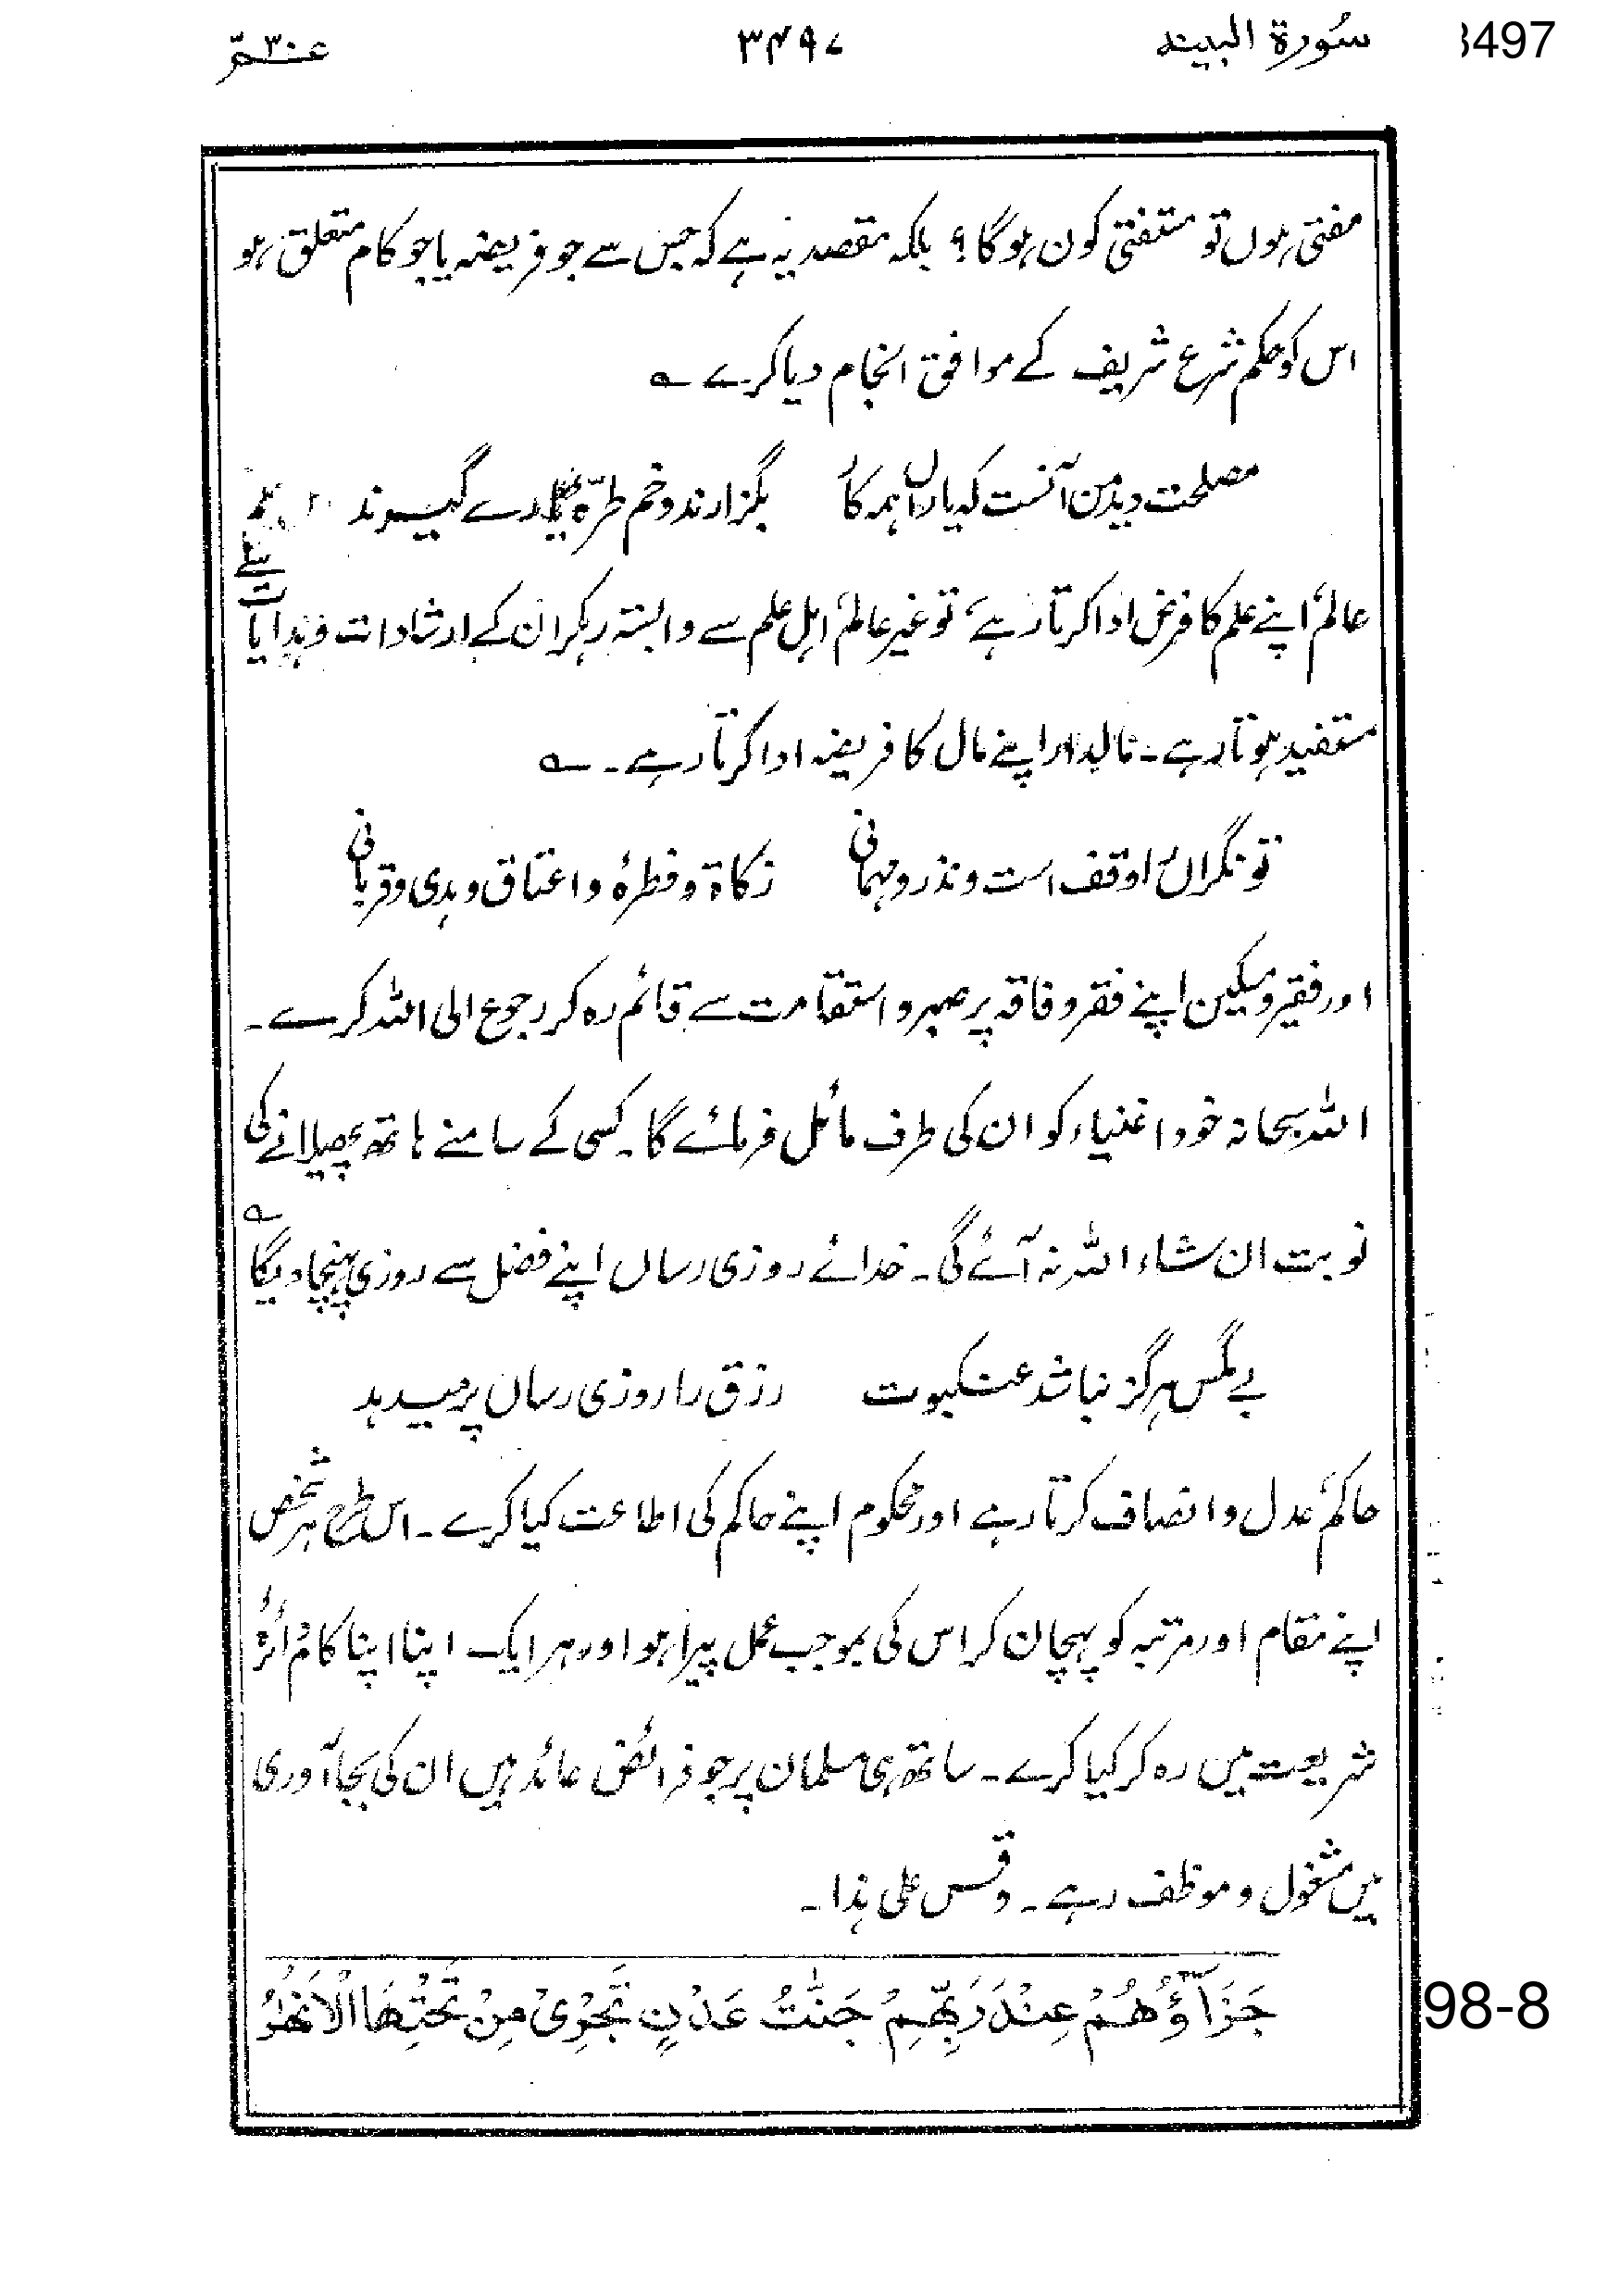 سُورة البینہ ۳۴۹۷ عـمّ ۳۰ 3497
مفتی ہوں تو مستفتی کون ہوگا؟ بلکہ مقصد یہ ہے کہ جس سے جو فریضہ یا جو کام متعلق ہو
اس کو حکم شرع شریف کے موافق انجام دیا کرے ؎
مصلحت دید من آنست کہ یاراں ہمہ کار بگزارند و خم طرّہ گیرند
عالم اپنے علم کا فرض ادا کرتا رہے، تو غیر عالم اہل علم سے وابستہ رہکر ان کے ارشادات و ہدایات سے
مستفید ہوتا رہے۔ مالدار اپنے مال کا فریضہ ادا کرتا رہے۔ ؎
تونگراں را وقف است و نذر و مہمانی زکاۃ و فطرہ و اعتاق و ہدی و قربانی
اور فقیر و مسکین اپنے فقر و فاقہ پر صبر و استقامت سے قائم رہ کر رجوع الی اللہ کرے۔
اللہ سبحانہ خود اغنیاء کو ان کی طرف مائل فرمائے گا۔ کسی کے سامنے ہاتھ پھیلانے کی
نوبت ان شاء اللہ نہ آئے گی۔ خدائے روزی رساں اپنے فضل سے روزی پہنچا دیگا ؎
بے مگس ہرگز نباشد عنکبوت رزق را روزی رساں پر میدہد
حاکم عدل و انصاف کرتا رہے اور محکوم اپنے حاکم کی اطاعت کیا کرے۔ اس طرح ہر شخص
اپنے مقام اور مرتبہ کو پہچان کر اس کی بموجب عمل پیرا ہو اور ہر ایک اپنا اپنا کام دائرۂ
شریعت میں رہ کر کیا کرے۔ ساتھ ہی مسلمان پر جو فرائض عائد ہیں ان کی بجا آوری
میں مشغول و موظف رہے۔ وقس علی ہذا۔
جَزَآؤُهُمْ عِنْدَ رَبِّهِمْ جَنّٰتُ عَدْنٍ تَجْرِىْ مِنْ تَحْتِهَا الْاَنْهٰرُ 98-8